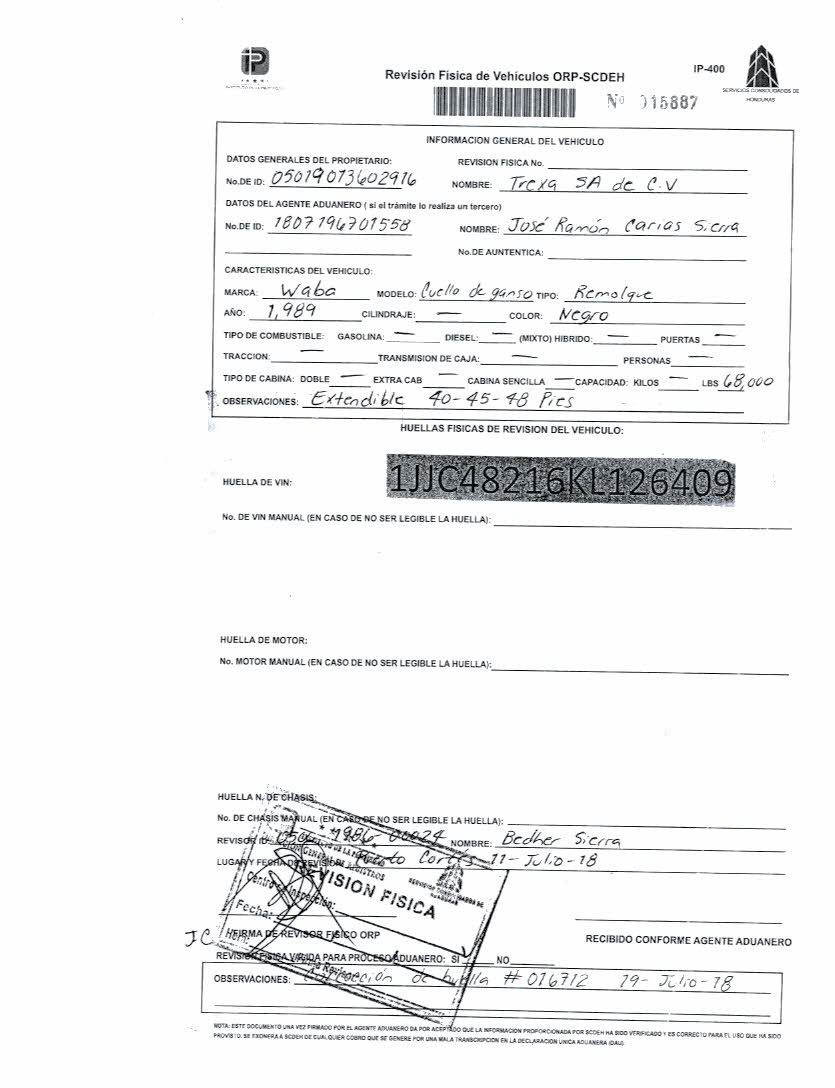 IP-400
Revisión Física de Vehiculos ORP-SCDEH
SERVICIOS CONSOLIDADOS DE
HONDURAS
Nº 015887
INFORMACION GENERAL DEL VEHICULO
DATOS GENERALES DEL PROPIETARIO: REVISION FISICA No.
No.DE ID: 05019013602916 NOMBRE: Trexa SA de C.V
DATOS DEL AGENTE ADUANERO ( si el trámite lo realiza un tercero)
No.DE ID: 1807196701558 NOMBRE: José Ramón Carias Sierra
No.DE AUNTENTICA:
CARACTERISTICAS DEL VEHICULO:
MARCA: Waba MODELO: Cuello de ganso TIPO: Remolque
AÑO: 1,989 CILINDRAJE: — COLOR: Negro
TIPO DE COMBUSTIBLE: GASOLINA: — DIESEL: — (MIXTO) HIBRIDO: — PUERTAS —
TRACCION: — TRANSMISION DE CAJA: — PERSONAS —
TIPO DE CABINA: DOBLE — EXTRA CAB — CABINA SENCILLA — CAPACIDAD: KILOS — LBS 68,000
OBSERVACIONES: Extendible 40-45-48 Pies
HUELLAS FISICAS DE REVISION DEL VEHICULO:
HUELLA DE VIN: 1JJC48216KL126409
No. DE VIN MANUAL (EN CASO DE NO SER LEGIBLE LA HUELLA):
HUELLA DE MOTOR:
No. MOTOR MANUAL (EN CASO DE NO SER LEGIBLE LA HUELLA):
HUELLA N. DE CHASIS:
No. DE CHASIS MANUAL (EN CASO DE NO SER LEGIBLE LA HUELLA):
REVISOR ID: 1986-00024 NOMBRE: Bedher Sierra
LUGAR Y FECHA DE REVISION: Puerto Cortes 11-Julio-18
REVISION FISICA
Centro de Inspección:
Fecha:
JC
FIRMA DE REVISOR FISICO ORP
RECIBIDO CONFORME AGENTE ADUANERO
REVISION FISICA VALIDA PARA PROCESO ADUANERO: SI NO
OBSERVACIONES: Corrección de huella # 016712 19-Julio-18
NOTA: ESTE DOCUMENTO UNA VEZ FIRMADO POR EL AGENTE ADUANERO DA POR ACEPTADO QUE LA INFORMACION PROPORCIONADA POR SCDEH HA SIDO VERIFICADO Y ES CORRECTO PARA EL USO QUE HA SIDO
PROVISTO. SE EXONERA A SCDEH DE CUALQUIER COBRO QUE SE GENERE POR UNA MALA TRANSCRIPCION EN LA DECLARACION UNICA ADUANERA (DAU).